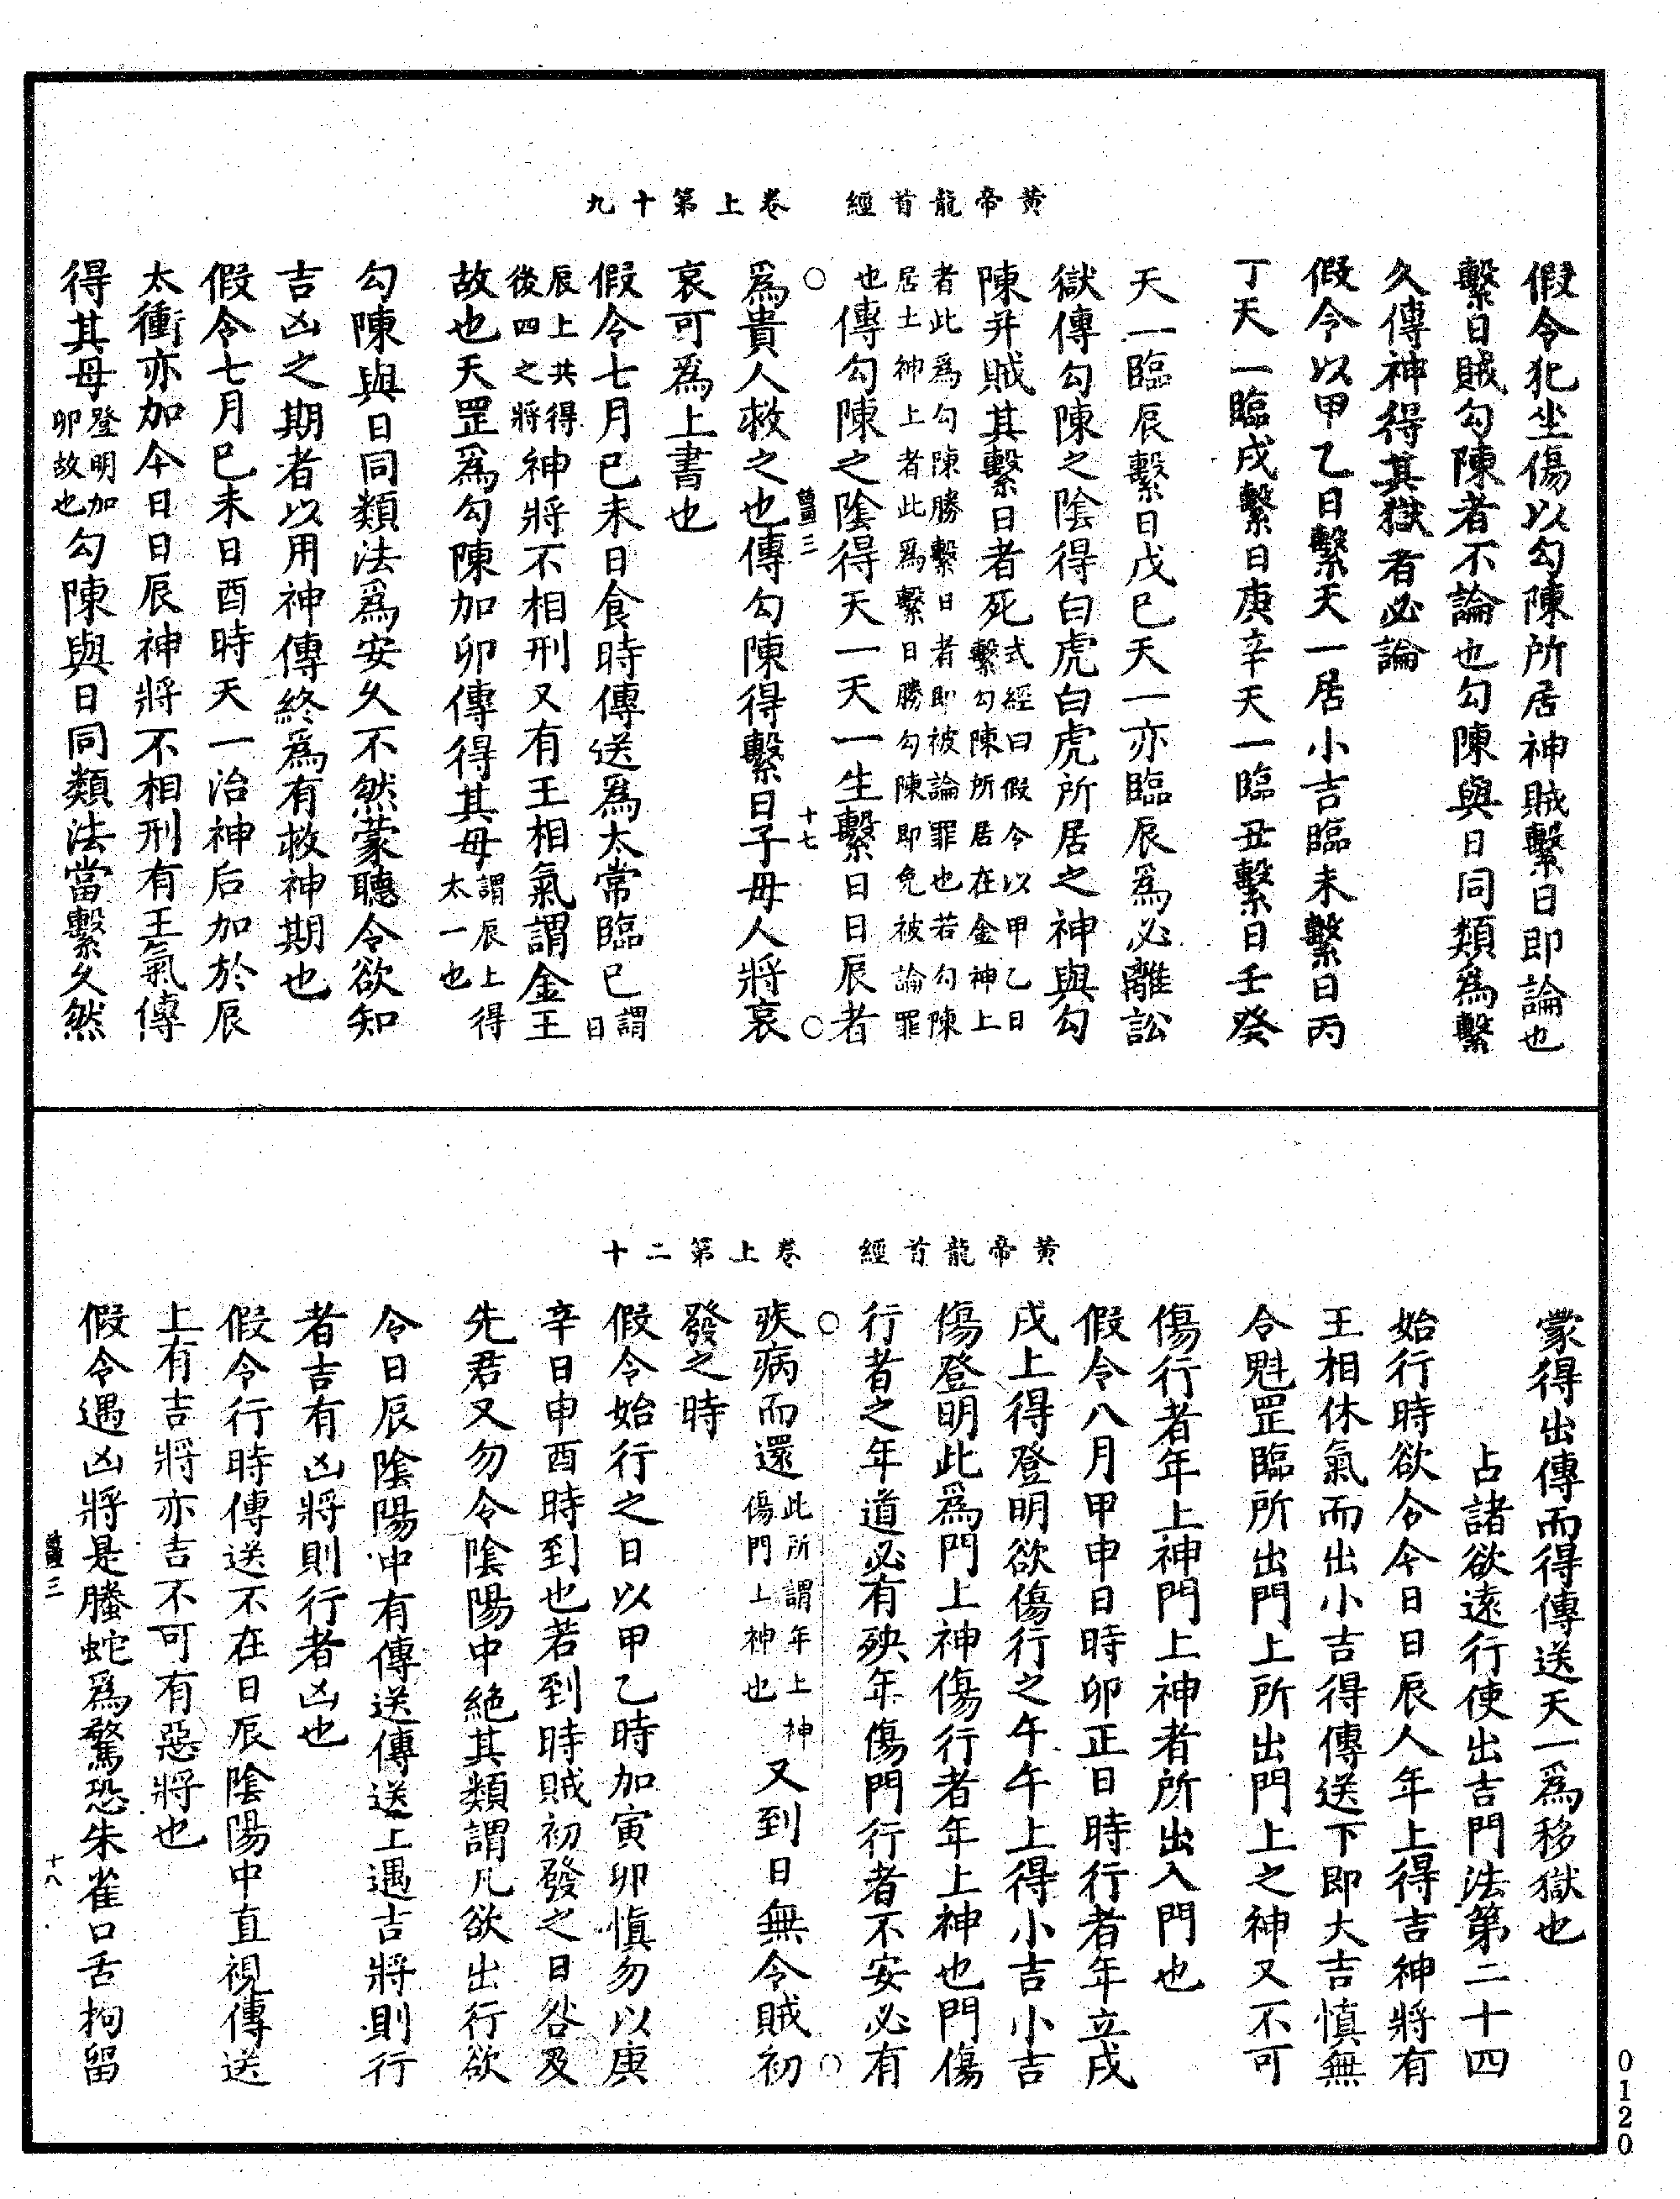 黃帝龍首經　卷上第十九
假令犯坐傷以勾陳所居神賊繫日即論也
繫日賊勾陳者不論也勾陳與日同類為繫
久傳神得其獄者必論
假令以甲乙日繫天一居小吉臨未繫日丙
丁天一臨戌繫日庚辛天一臨丑繫日壬癸
天一臨辰繫日戊已天一亦臨辰為必離訟
獄傳勾陳之陰得白虎白虎所居之神與勾
陳并賊其繫日者死式經曰假令以甲乙日繫勾陳所居在金神上
者此為勾陳勝繫日者即被論罪也若勾陳居土神上者此為繫日勝勾陳即免被論罪
也傳勾陳之陰得天一天一生繫日日辰者
○　萱三　十七　○
為貴人救之也傳勾陳得繫日子母人將哀
哀可為上書也
假令七月已未日食時傳送為太常臨已謂日
辰上共得後四之將神將不相刑又有王相氣謂金王
故也天罡為勾陳加卯傳得其母謂辰上得太一也
勾陳與日同類法為安久不然蒙聽令欲知
吉凶之期者以用神傳終為有救神期也
假令七月已未日酉時天一治神后加於辰
太衝亦加今日日辰神將不相刑有王氣傳
得其母登明加卯故也勾陳與日同類法當繫久然
黃帝龍首經　卷上第二十
蒙得出傳而得傳送天一為移獄也
占諸欲遠行使出吉門法第二十四
始行時欲令今日日辰人年上得吉神將有
王相休氣而出小吉得傳送下即大吉慎無
令魁罡臨所出門上所出門上之神又不可
傷行者年上神門上神者所出入門也
假令八月甲申日時卯正日時行者年立戌
戌上得登明欲傷行之午午上得小吉小吉
傷登明此為門上神傷行者年上神也門傷
行者之年道必有殃年傷門行者不安必有
○　○
疾病而還此所謂年上神傷門上神也又到日無令賊初
發之時
假令始行之日以甲乙時加寅卯慎勿以庚
辛日申酉時到也若到時賊初發之日咎及
先君又勿令陰陽中絕其類謂凡欲出行欲
令日辰陰陽中有傳送傳送上遇吉將則行
者吉有凶將則行者凶也
假令行時傳送不在日辰陰陽中直視傳送
上有吉將亦吉不可有惡將也
假令遇凶將是螣蛇為驚恐朱雀口舌拘留
三　十八
0120